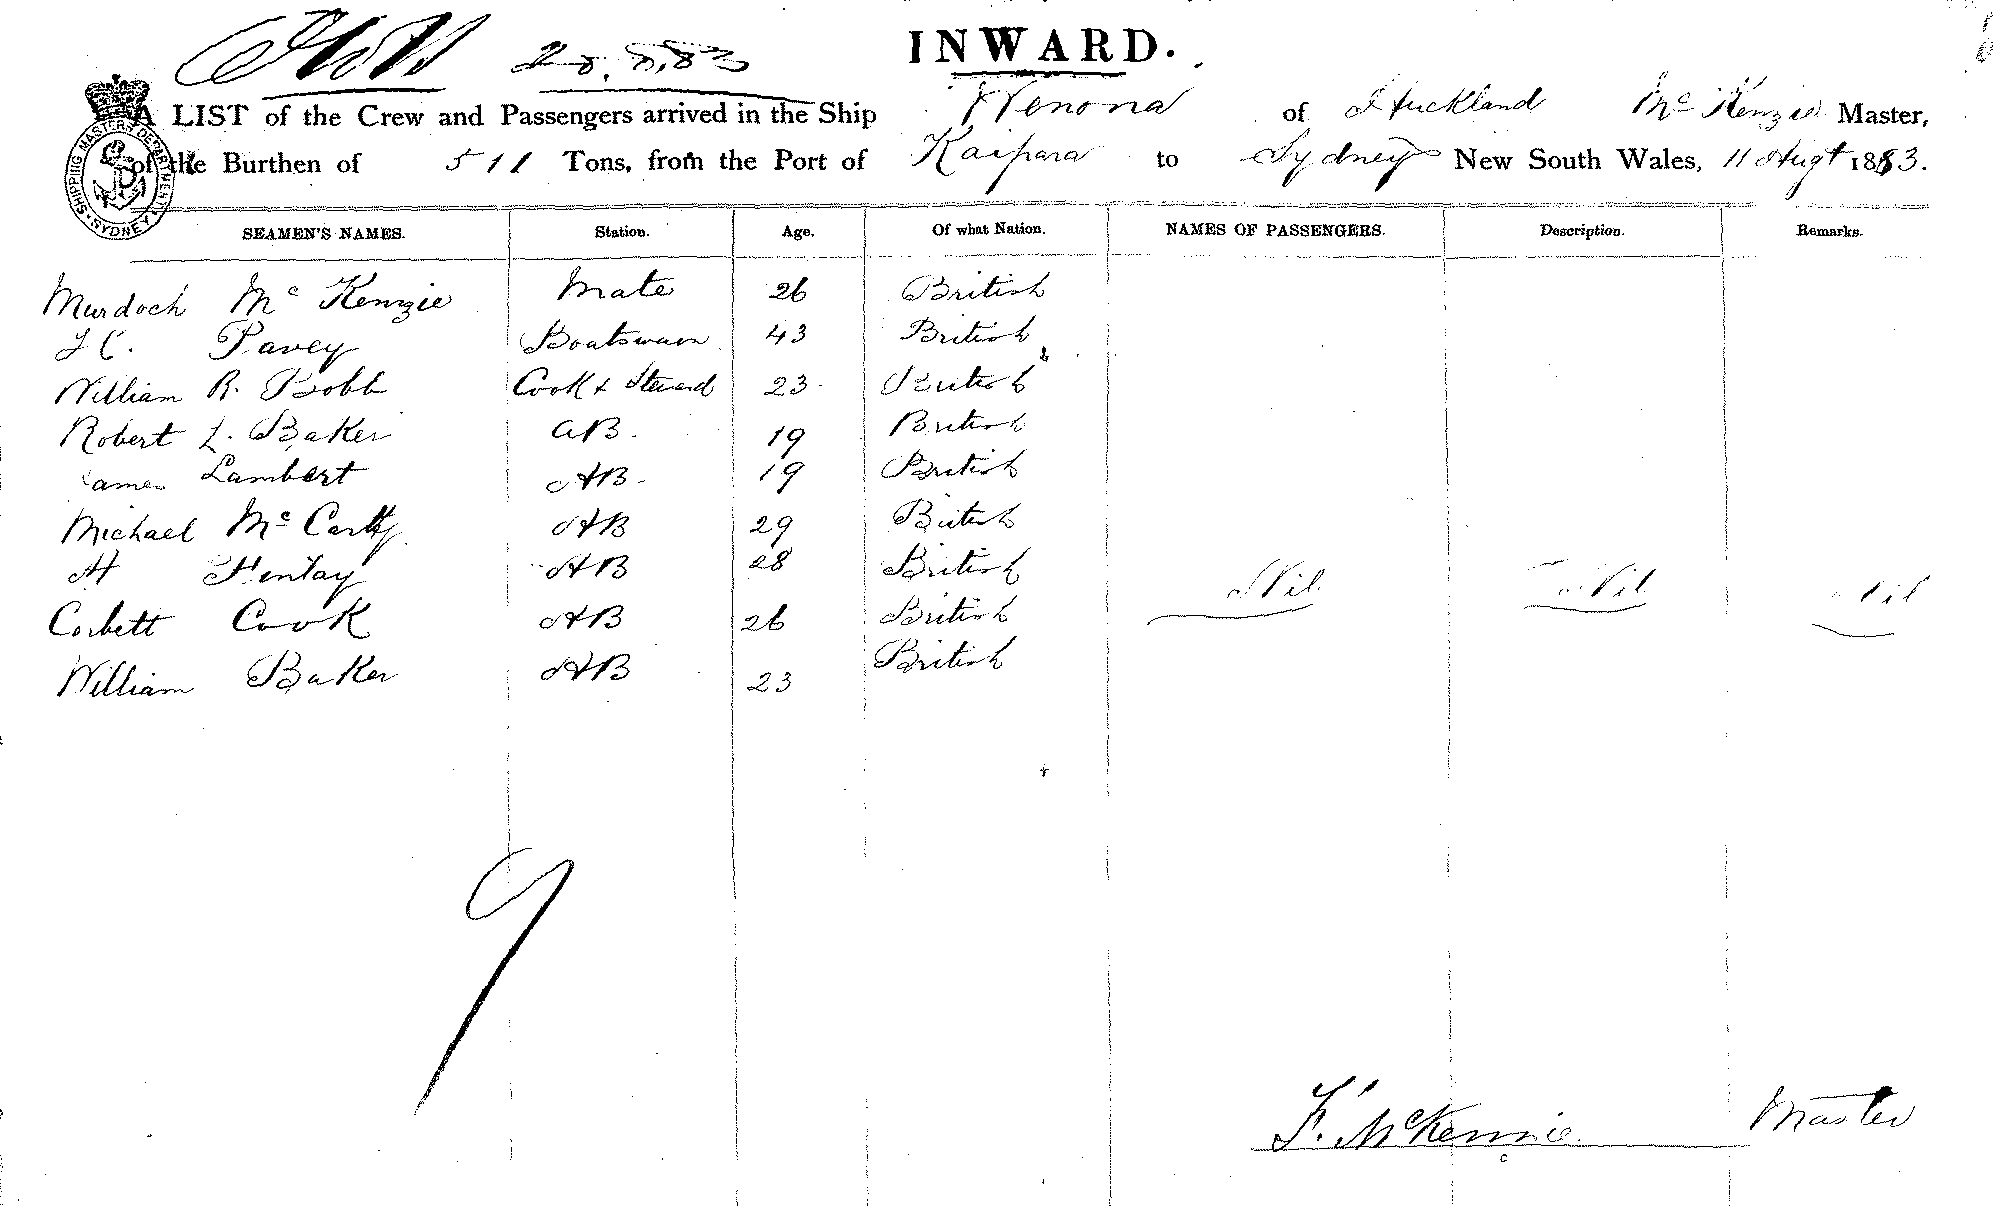 20.8.83
INWARD.
A LIST of the Crew and Passengers arrived in the Ship Wenona of Auckland McKenzie Master,
of the Burthen of 511 Tons, from the Port of Kaipara to Sydney New South Wales, 11 Augt 1883.
SHIPPING MASTERS DEPARTMENT SYDNEY
SEAMEN'S NAMES. Station. Age. Of what Nation. NAMES OF PASSENGERS. Description. Remarks.
Murdoch McKenzie Mate 26 British
Pavey Boatswain 43 British
William R. Bobb Cook & Steward 23 British
Robert L. Baker AB. 19 British
James Lambert AB. 19 British
Michael McCarthy AB 29 British
H Finlay AB 28 British Nil Nil Nil
Corbett Cook AB 26 British
William Baker AB 23 British
9
F. McKenzie Master